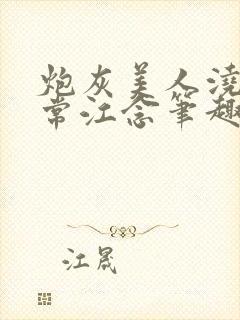 炮灰美人浇
常江念笔趣
江晟